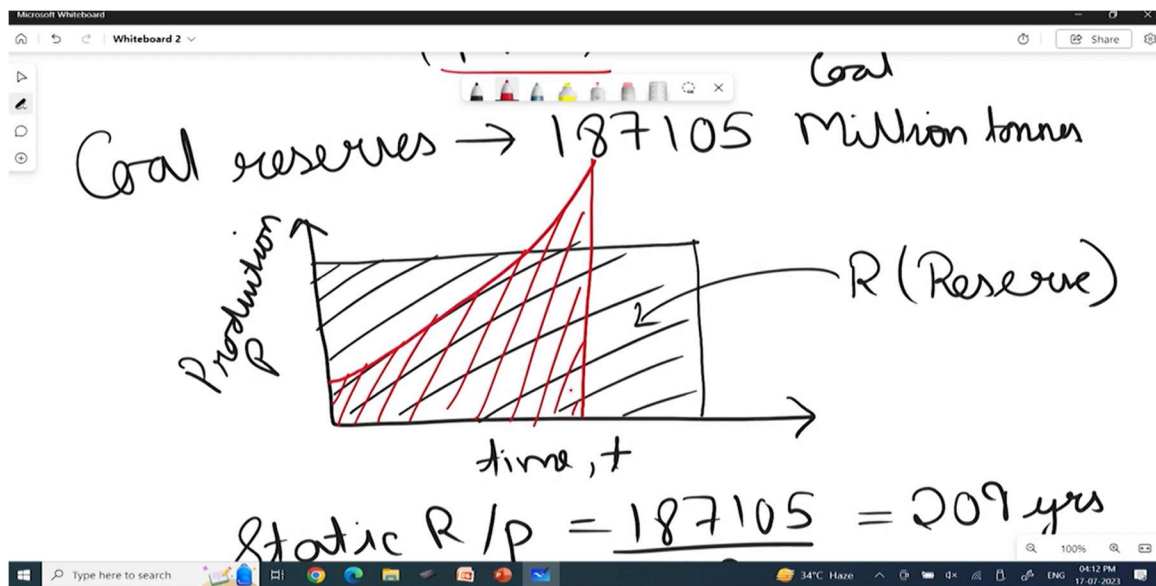 Microsoft Whiteboard
Whiteboard 2
Share
Coal
Coal reserves → 187105 Million tonnes
Production
P
R (Reserve)
time, t
Static R/p = 187105 = 209 yrs
100%
Type here to search
34°C Haze
ENG
04:12 PM
17-07-2023